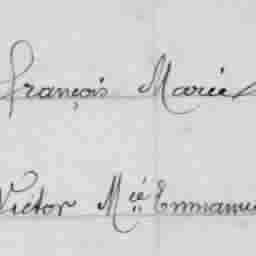 François Marie
Victor M^ie Emmanue